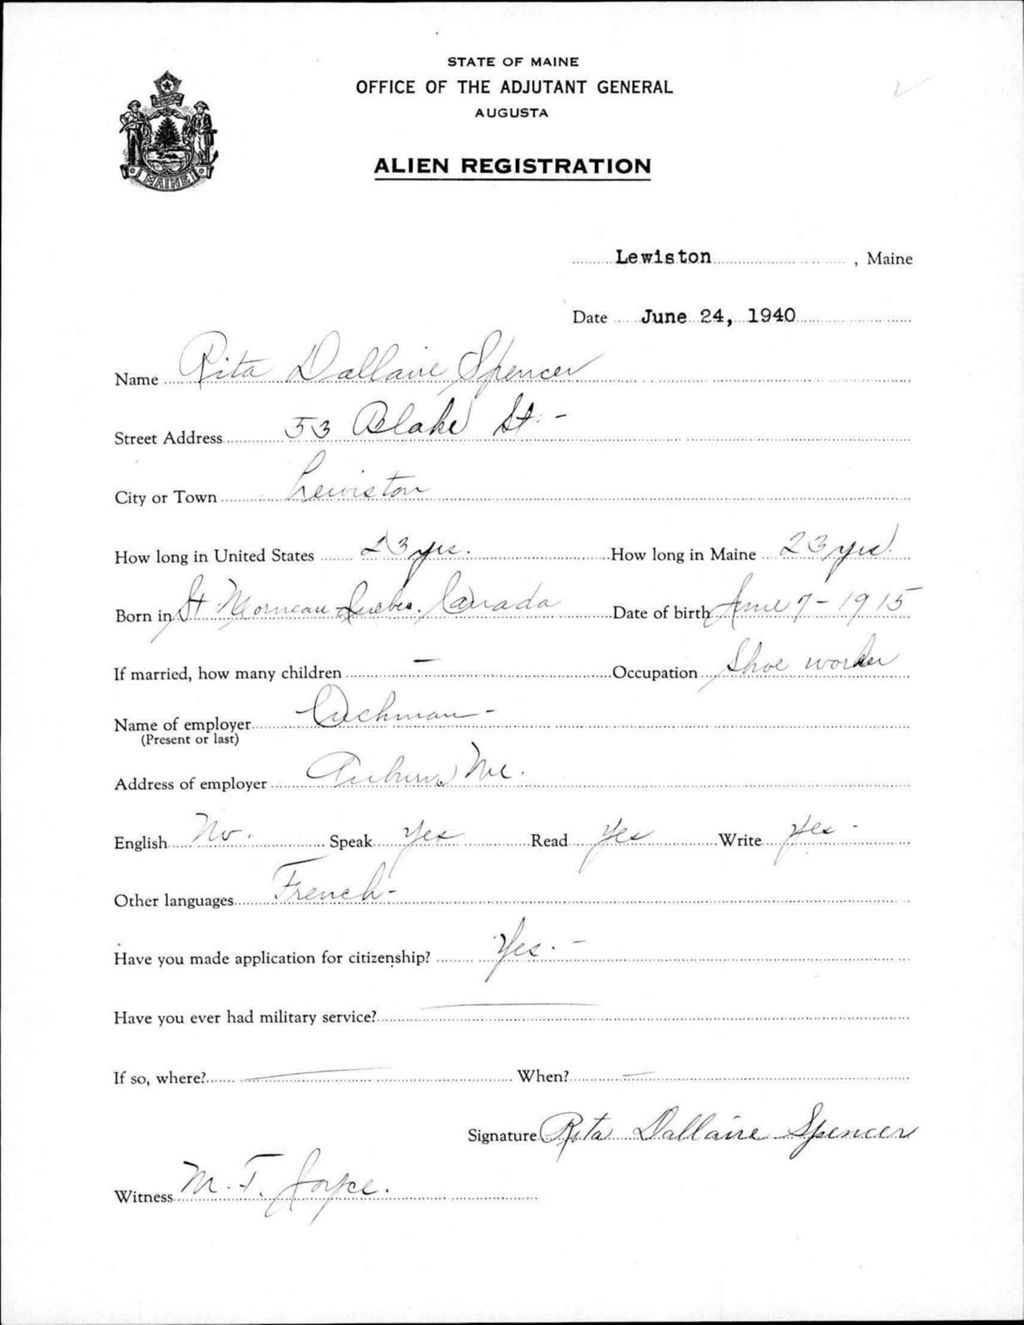 STATE OF MAINE
OFFICE OF THE ADJUTANT GENERAL
AUGUSTA
ALIEN REGISTRATION
MAINE
Lewiston, Maine
Date June 24, 1940
Name Rita Dallaire Spencer
Street Address 53 Blake St. -
City or Town Lewiston
How long in United States 23 yrs. How long in Maine 23 yrs.
Born in St Morneau Quebec. Canada Date of birth June 7 - 1915
If married, how many children — Occupation Shoe worker
Name of employer Cushman -
(Present or last)
Address of employer Auburn, Me.
English No. Speak Yes Read Yes Write Yes -
Other languages French -
Have you made application for citizenship? Yes. -
Have you ever had military service? —
If so, where? — When? —
Signature Rita Dallaire Spencer
Witness M. T. Joyce.